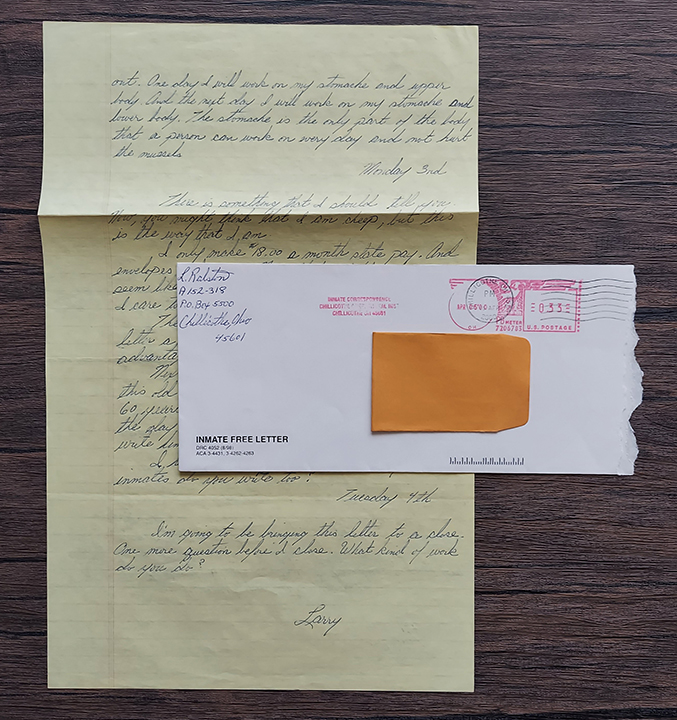 out. One day I will work on my stomache and upper
body. And the next day I will work on my stomache and
lower body. The stomache is the only part of the body
that a person can work on every day and not hurt
the mussels
Monday 3nd
There is something that I should tell you.
Now, you might think that I am cheap, but this
is the way that I am.
I only make $18.00 a month state pay. And
envelopes
seem like
I care
The
letter a
advanta
this old
60, years
the day
write
I
inmates do you write too?
Tuesday 4th
I'm going to be bringing this letter to a close.
One more question before I close. What kind of work
do you do?
Larry
L. Ralston
A152-318
P.O. Box 5500
Chillicothe, Ohio
45601
INMATE CORRESPONDENCE
CHILLICOTHE INST.
CHILLICOTHE OH 45601
CHILLICOTHE OH
PM
APR 05 00
OH
METER
7206785
033
U.S. POSTAGE
INMATE FREE LETTER
DRC 4352 (8/98)
ACA 3-4431, 3-4262-4263